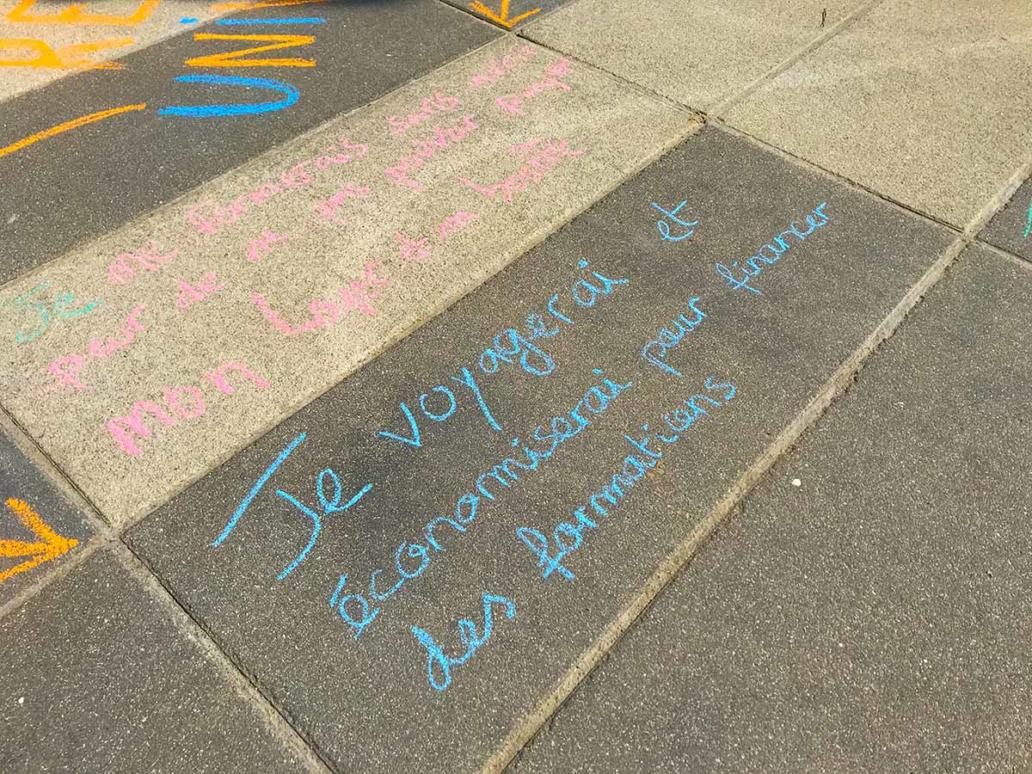 UNI
Je me formerais sans avoir
peur de ne pas pouvoir payer
mon
Je voyagerai et
économiserai pour financer
des formations